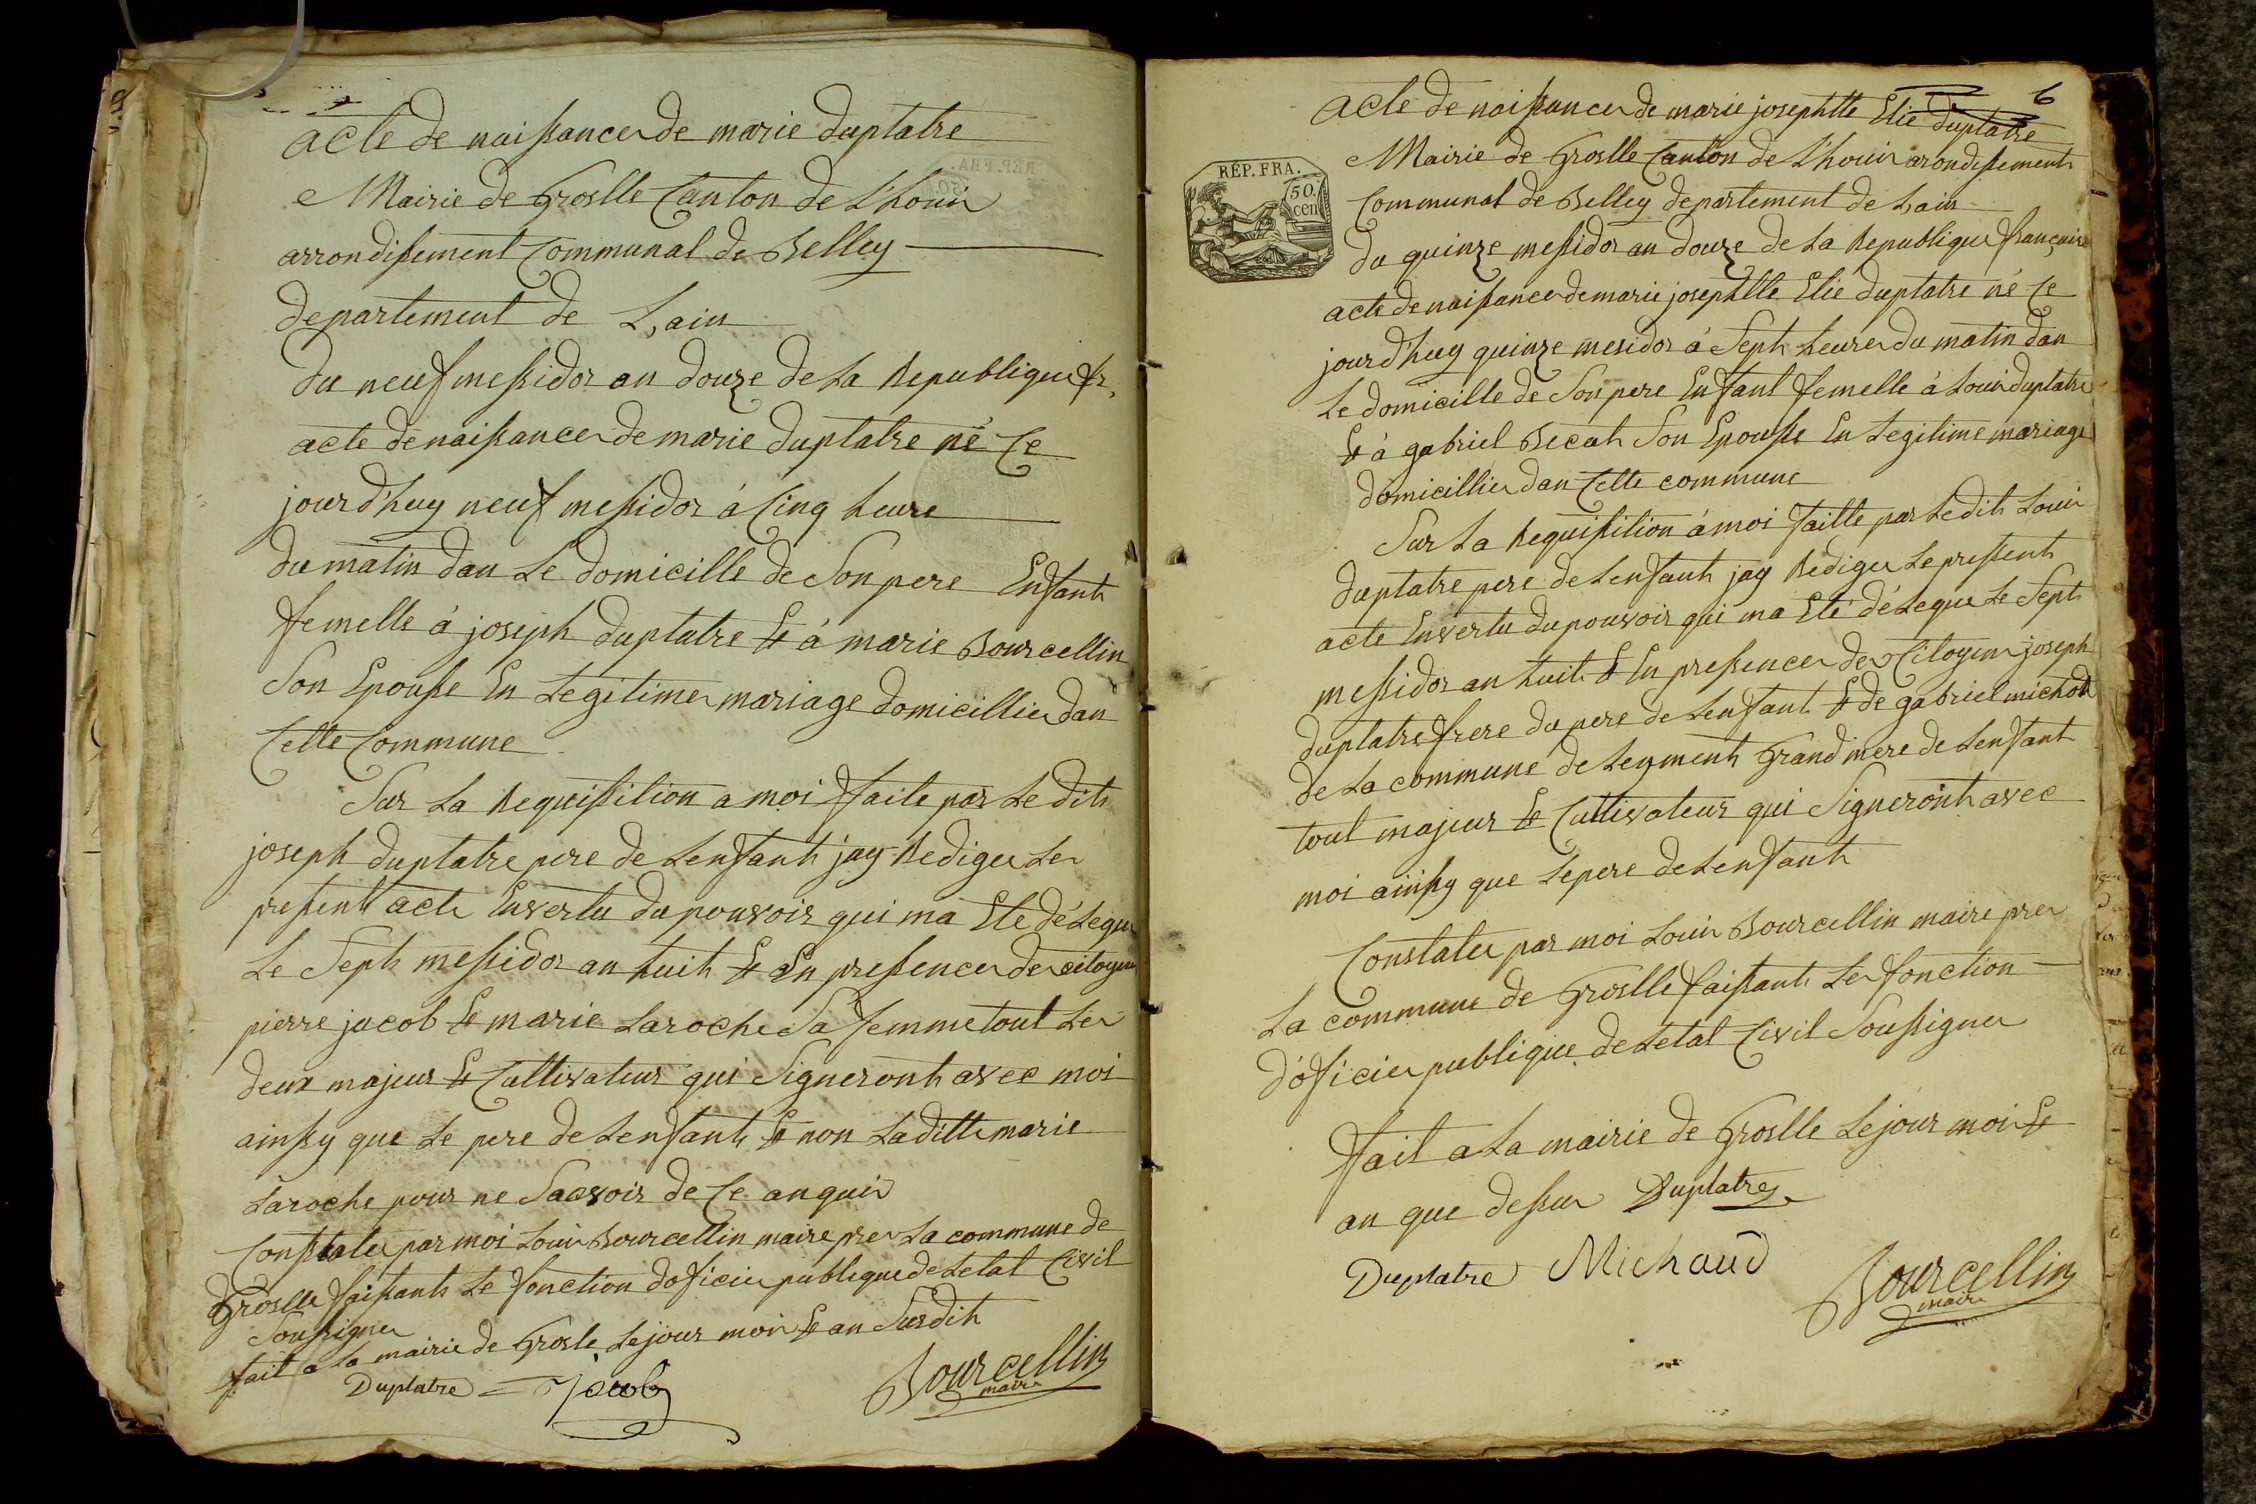 acte de naissance de marie duplatre
Mairie de Groslle Canton de L'houis
arrondissement Communal de Belley
departement de L,ain
du neuf messidor an douze de La Republique fr.
acte de naissance de marie duplatre né Ce
jourd'huy neuf messidor à Cinq heure
du matin dan Le domicille de Son pere Enfant
femelle à joseph duplatre Et à marie Bourcellin
Son Epousse En Legitime mariage domicillier dan
Cette Commune
Sur La Requissition a moi faite par Le dit
joseph duplatre pere de Lenfant jay Rediger Le
present acte En vertu du pouvoir qui ma Ete délegue
Le Sept messidor an huit Et En pressence de citoyen
pierre jacob Et marie Laroche Sa femme tout Les
deux majeur Et Cultivateur qui Signeront avec moi
ainssy que Le pere de Lenfant Et non La ditte marie
Laroche pour ne Sacvoir de Ce anquis
Constater par moi Louis Bourcellin maire pres La commune de
Groslle faissant Le fonction doficier publique de Letat Civil
Soussigner
fait a La mairie de Grosle Le jour mois Et an Surdit
Duplatre = Jacob Bourcellin
maire
6
acte de naissance de marie josephtte Elie duplatre
REP. FRA.
50.
cen
Mairie de Groslle Canton de L'houis arondissement
Communal de Belley departement de Lain
du quinze messidor an douze de La Republique française
acte de naissance de marie josephtte Elie duplatre né Ce
jourd'huy quinze mesidor à Sept heure du matin dan
Le domicille de Son pere Enfant femelle à Louis duplatre
Et à gabriel Becat Son Epousse En Legitime mariage
domicillier dan Cette commune
Sur La Requissition à moi faitte par Ledit Louis
duplatre pere de Lenfant jay Rediger Le pressent
acte En vertu du pouvoir qui ma Eté délegue Le Sept
messidor an huit Et En pressence de Citoyen joseph
duplatre frere du pere de Lenfant Et de gabriel michod
de La commune de Leyment Grand mere de Lenfant
tout majeur Et Cultivateur qui Signeront avec
moi ainssy que Le pere de Lenfant
Constater par moi Louis Bourcellin maire pres
La commune de Groslle faissant Les fonction
d'oficier publique de Letat Civil Soussigner
fait a La mairie de Groslle Le jour mois Et
an que dessus Duplatre
Duplatre Michaud Bourcellin
maire